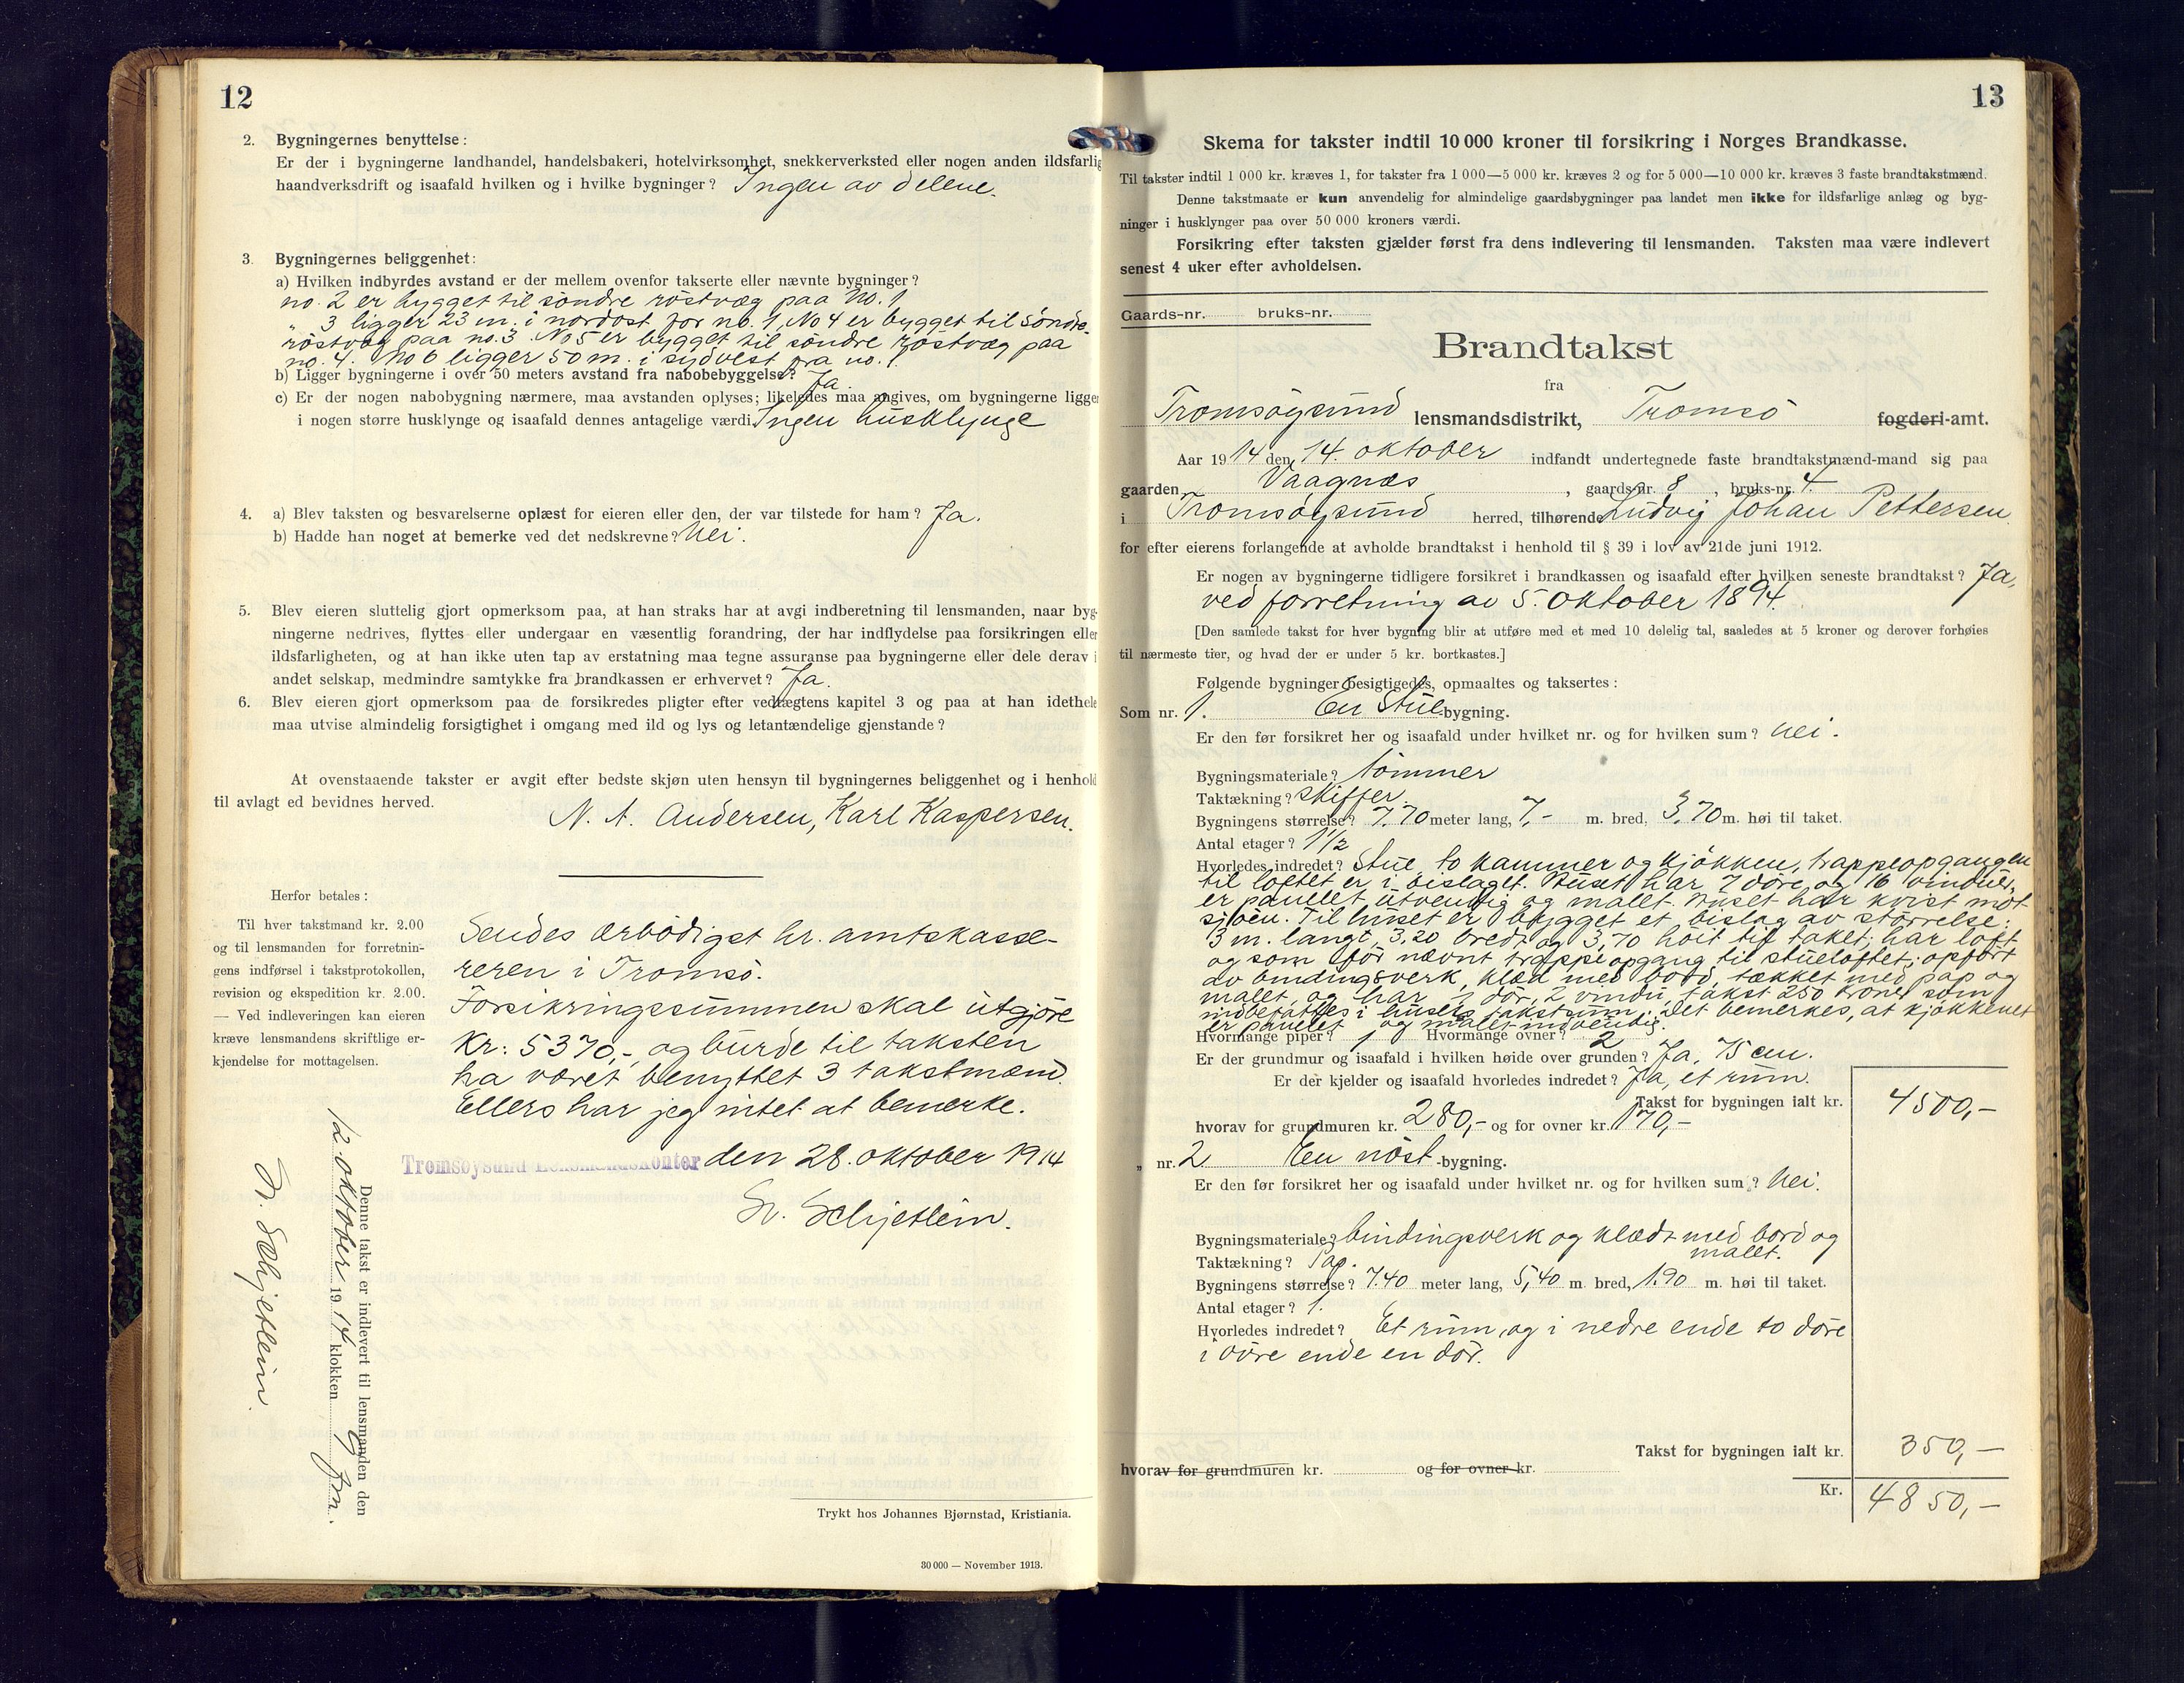 12
2. Bygningernes benyttelse:
Er der i bygningerne landhandel, handelsbakeri, hotelvirksomhet, snekkerverksted eller nogen anden ildsfarlig
haandverksdrift og isaafald hvilken og i hvilke bygninger? Ingen av delene.
3. Bygningernes beliggenhet:
a) Hvilken indbyrdes avstand er der mellem ovenfor takserte eller nævnte bygninger?
no. 2 er bygget til søndre røstvæg paa no. 1
" 3 ligger 23 m. i nordost for no. 1, No 4 er bygget til søndre
røstvæg paa no. 3. No 5 er bygget til søndre røstvæg paa
no. 4. No 6 ligger 50 m. i sydvest fra no. 1.
b) Ligger bygningerne i over 50 meters avstand fra nabobebyggelse? Ja.
c) Er der nogen nabobygning nærmere, maa avstanden oplyses; likeledes maa angives, om bygningerne ligger
i nogen større husklynge og isaafald dennes antagelige værdi. Ingen husklynge
4. a) Blev taksten og besvarelserne oplæst for eieren eller den, der var tilstede for ham? Ja.
b) Hadde han noget at bemerke ved det nedskrevne? Nei.
5. Blev eieren sluttelig gjort opmerksom paa, at han straks har at avgi indberetning til lensmanden, naar byg-
ningerne nedrives, flyttes eller undergaar en væsentlig forandring, der har indflydelse paa forsikringen eller
ildsfarligheten, og at han ikke uten tap av erstatning maa tegne assuranse paa bygningerne eller dele derav i
andet selskap, medmindre samtykke fra brandkassen er erhvervet? Ja.
6. Blev eieren gjort opmerksom paa de forsikredes pligter efter vedtægtens kapitel 3 og paa at han idethele
maa utvise almindelig forsigtighet i omgang med ild og lys og letantændelige gjenstande?
At ovenstaaende takster er avgit efter bedste skjøn uten hensyn til bygningernes beliggenhet og i henhold
til avlagt ed bevidnes herved.
N. A. Andersen, Karl Kaspersen.
Herfor betales:
Til hver takstmand kr. 2.00
og til lensmanden for forretnin-
gens indførsel i takstprotokollen,
revision og ekspedition kr. 2.00.
— Ved indleveringen kan eieren
kræve lensmandens skriftlige er-
kjendelse for mottagelsen.
Sendes ærbødigst hr. amtskasse-
reren i Tromsø.
Forsikringssummen skal utgjøre
Kr: 5370,- og burde til taksten
ha været benyttet 3 takstmænd.
Ellers har jeg intet at bemerke.
Tromsøysund Lensmandskontor den 28. oktober 1914
Sv. Schjetlein.
Denne takst er indlevert til lensmanden den
12. oktober 1914 klokken 9 fm.
Sv. Schjetlein.
Trykt hos Johannes Bjørnstad, Kristiania.
30 000 — November 1913.
13
Skema for takster indtil 10 000 kroner til forsikring i Norges Brandkasse.
Til takster indtil 1 000 kr. kræves 1, for takster fra 1 000—5 000 kr. kræves 2 og for 5 000—10 000 kr. kræves 3 faste brandtakstmænd.
Denne takstmaate er kun anvendelig for almindelige gaardsbygninger paa landet men ikke for ildsfarlige anlæg og byg-
ninger i husklynger paa over 50 000 kroners værdi.
Forsikring efter taksten gjælder først fra dens indlevering til lensmanden. Taksten maa være indlevert
senest 4 uker efter avholdelsen.
Gaards-nr. bruks-nr.
Brandtakst
fra
Tromsøysund lensmandsdistrikt, Tromsø fogderi-amt.
Aar 1914 den 14. oktober indfandt undertegnede faste brandtakstmænd-mand sig paa
gaarden Vaagnæs, gaards-nr. 8, bruks-nr. 4.
i Tromsøysund herred, tilhørende Ludvig Johan Pettersen
for efter eierens forlangende at avholde brandtakst i henhold til § 39 i lov av 21de juni 1912.
Er nogen av bygningerne tidligere forsikret i brandkassen og isaafald efter hvilken seneste brandtakst? Ja,
ved forretning av 5. oktober 1894.
[Den samlede takst for hver bygning blir at utføre med et med 10 delelig tal, saaledes at 5 kroner og derover forhøies
til nærmeste tier, og hvad der er under 5 kr. bortkastes.]
Følgende bygninger besigtigedes, opmaaltes og taksertes:
Som nr. 1. En Stue-bygning.
Er den før forsikret her og isaafald under hvilket nr. og for hvilken sum? Nei.
Bygningsmateriale? tømmer
Taktækning? Skiffer.
Bygningens størrelse? 7,70 meter lang, 7,- m. bred, 3,70 m. høi til taket.
Antal etager? 1 1/2
Hvorledes indredet? Stue to kammer og kjøkken, trappeopgangen
til loftet er i bislaget. Huset har 7 døre og 16 vinduer,
er panellet utvendig og mallt. Huset har kvist mot
sjøen. Til huset er bygget et bislag av størrelse:
3 m. langt, 3,20 bredt og 3,70 høit til taket; har loft
og som før nævnt trappeopgang til stueloftet; opført
av bindingsverk, klæd med bord, tækket med pap og
malet, og har 1 dør, 2 vindu, takst 250 kroner som
indbefattes i husets takstsum. Det bemerkes, at kjøkkenet
er panellet og mallt indvendig.
Hvormange piper? 1 Hvormange ovner? 2
Er der grundmur og isaafald i hvilken høide over grunden? Ja, 75 cm.
Er der kjelder og isaafald hvorledes indredet? Ja, et rum.
Takst for bygningen ialt kr. 4500,—
hvorav for grundmuren kr. 280,- og for ovner kr. 170,-
„ nr. 2 En nøst-bygning.
Er den før forsikret her og isaafald under hvilket nr. og for hvilken sum? Nei.
Bygningsmateriale? bindingsverk og klædt med bord og
mallt.
Taktækning? Pap.
Bygningens størrelse? 7.40 meter lang, 5,40 m. bred, 1.90 m. høi til taket.
Antal etager? 1.
Hvorledes indredet? Et rum, og i nedre ende to døre
i øvre ende en dør.
Takst for bygningen ialt kr. 350,—
hvorav for grundmuren kr. og for ovner kr.
Kr. 4850,—